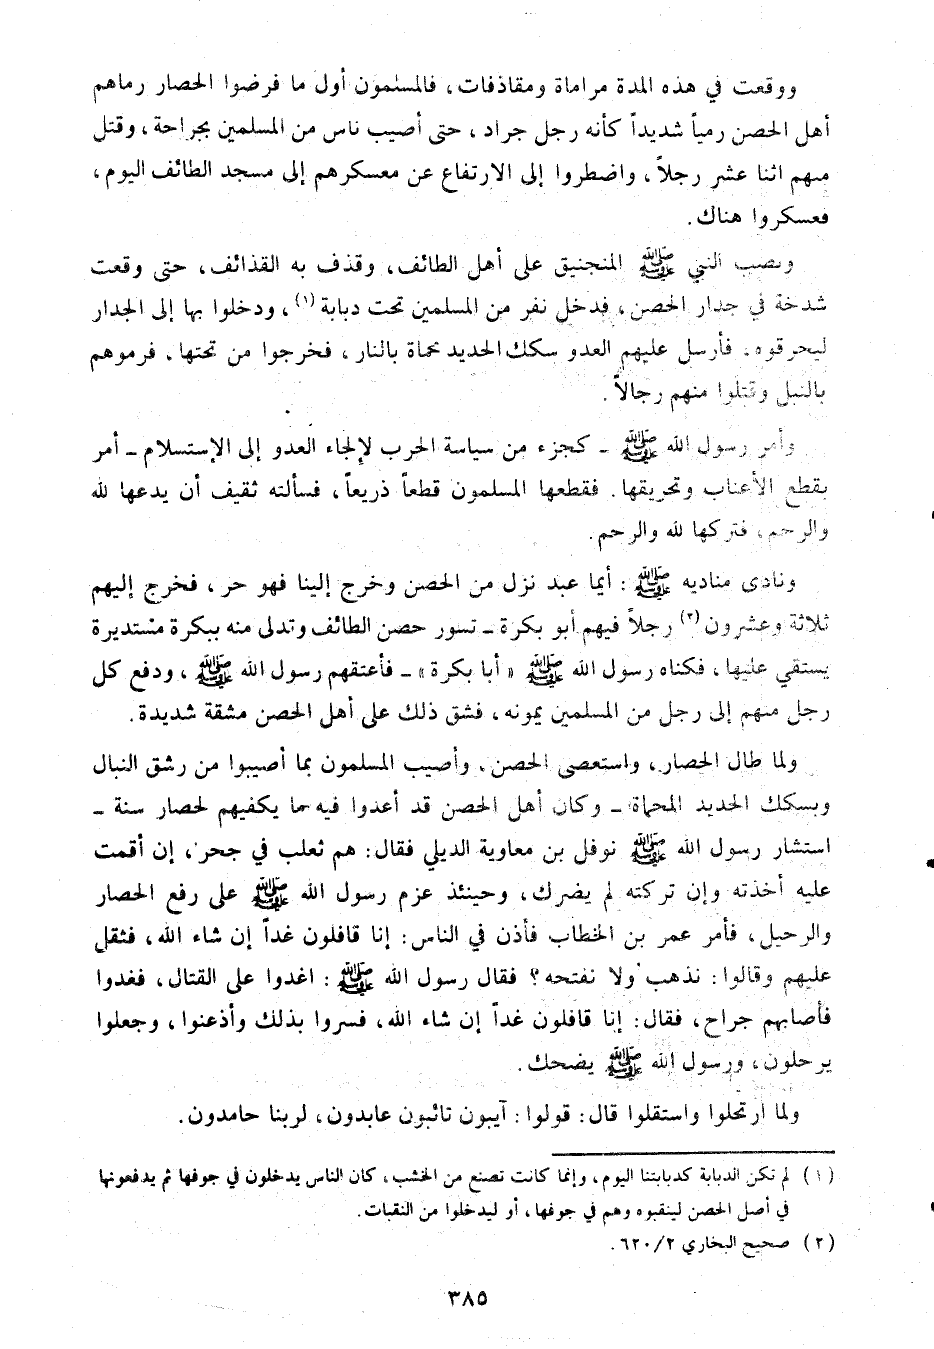 ووقعت في هذه المدة مراماة ومقاذفات، فالمسلمون أول ما فرضوا الحصار رماهم
أهل الحصن رمياً شديداً كأنه رجل جراد، حتى أصيب ناس من المسلمين بجراحة، وقتل
منهم اثنا عشر رجلاً، واضطروا إلى الارتفاع عن معسكرهم إلى مسجد الطائف اليوم،
فعسكروا هناك.
ونصب النبي ﷺ المنجنيق على أهل الطائف، وقذف به القذائف، حتى وقعت
شدخة في جدار الحصن، فدخل نفر من المسلمين تحت دبابة(١)، ودخلوا بها إلى الجدار
ليحرقوه. فأرسل عليهم العدو سكك الحديد محماة بالنار، فخرجوا من تحتها، فرموهم
بالنبل وقتلوا منهم رجالاً.
وأمر رسول الله ﷺ ـ كجزء من سياسة الحرب لإلجاء العدو إلى الإستسلام ـ أمر
بقطع الأعناب وتحريقها. فقطعها المسلمون قطعاً ذريعاً، فسألته ثقيف أن يدعها لله
والرحم، فتركها لله والرحم.
ونادى مناديه ﷺ: أيما عبد نزل من الحصن وخرج إلينا فهو حر، فخرج إليهم
ثلاثة وعشرون(٢) رجلاً فيهم أبو بكرة ـ تسور حصن الطائف وتدلى منه ببكرة مستديرة
يستقي عليها، فكناه رسول الله ﷺ «أبا بكرة» ـ فأعتقهم رسول الله ﷺ، ودفع كل
رجل منهم إلى رجل من المسلمين يمونه، فشق ذلك على أهل الحصن مشقة شديدة.
ولما طال الحصار، واستعصى الحصن، وأصيب المسلمون بما أصيبوا من رشق النبال
وبسكك الحديد المحماة ـ وكان أهل الحصن قد أعدوا فيه ما يكفيهم لحصار سنة ـ
استشار رسول الله ﷺ نوفل بن معاوية الديلي فقال: هم ثعلب في جحر، إن أقمت
عليه أخذته وإن تركته لم يضرك، وحينئذ عزم رسول الله ﷺ على رفع الحصار
والرحيل، فأمر عمر بن الخطاب فأذن في الناس: إنا قافلون غداً إن شاء الله، فثقل
عليهم وقالوا: نذهب ولا نفتحه؟ فقال رسول الله ﷺ: اغدوا على القتال، فغدوا
فأصابهم جراح، فقال: إنا قافلون غداً إن شاء الله، فسروا بذلك وأذعنوا، وجعلوا
يرحلون، ورسول الله ﷺ يضحك.
ولما ارتحلوا واستقلوا قال: قولوا: آيبون تائبون عابدون، لربنا حامدون.
(١) لم تكن الدبابة كدبابتنا اليوم، وإنما كانت تصنع من الخشب، كان الناس يدخلون في جوفها ثم يدفعونها
في أصل الحصن لينقبوه وهم في جوفها، أو ليدخلوا من النقبات.
(٢) صحيح البخاري ٢/٦٢٠.
٣٨٥